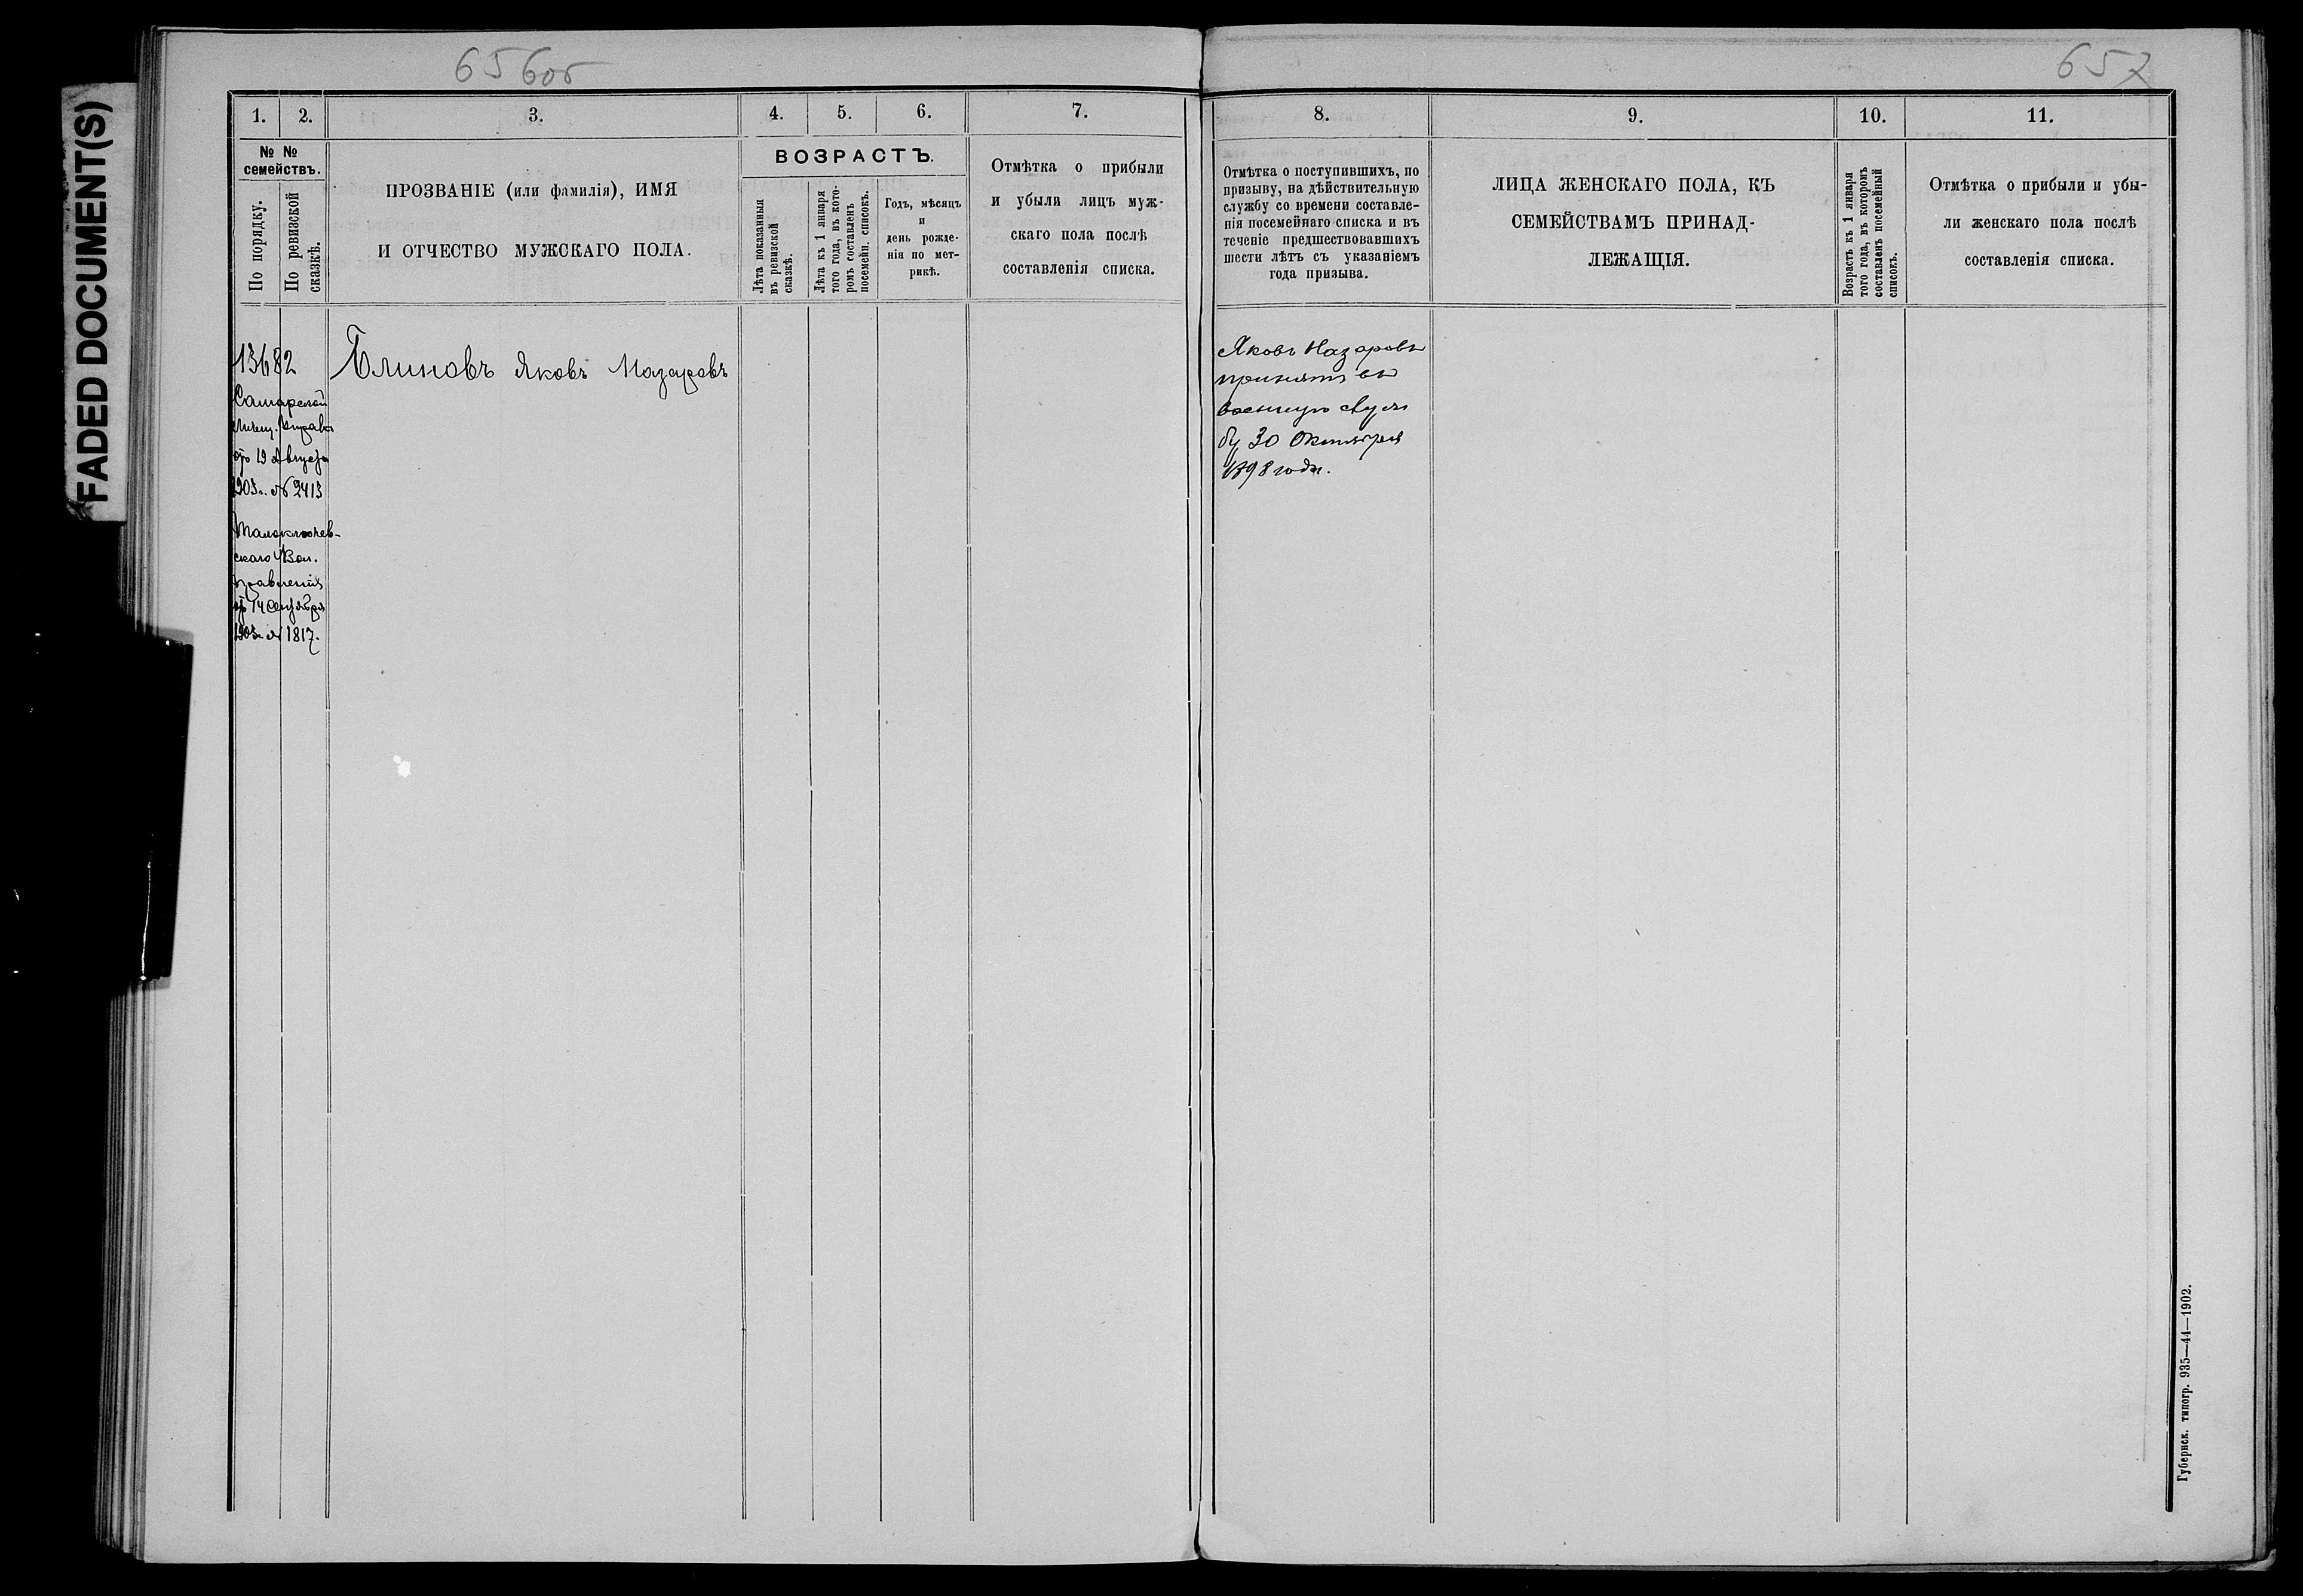 FADED DOCUMENT(S)
656об
657
1. 2. 3. 4. 5. 6. 7.
№ №
семействъ.
По порядку.
По ревизской
сказкѣ.
ПРОЗВАНІЕ (или фамилія), ИМЯ
И ОТЧЕСТВО МУЖСКАГО ПОЛА.
ВОЗРАСТЪ.
Лѣта показанныя
въ ревизской
сказкѣ.
Лѣта къ 1 января
того года, въ кото-
ромъ составленъ
посемейн. списокъ.
Годъ, мѣсяцъ
и
день рожде-
нія по мет-
рикѣ.
Отмѣтка о прибыли
и убыли лицъ муж-
скаго пола послѣ
составленія списка.
13682
Самарской
Мѣщ. Управы
отъ 19 Августа
1903г. № 2413
Малоключев-
скаго Вол.
Правленія
отъ 14 Сентября
1903г. № 1817.
Блиновъ Яковъ Назаровъ
8. 9. 10. 11.
Отмѣтка о поступившихъ, по
призыву, на дѣйствительную
службу со времени составле-
нія посемейнаго списка и въ
теченіе предшествовавшихъ
шести лѣтъ съ указаніемъ
года призыва.
ЛИЦА ЖЕНСКАГО ПОЛА, КЪ
СЕМЕЙСТВАМЪ ПРИНАД-
ЛЕЖАЩІЯ.
Возрастъ къ 1 января
того года, въ которомъ
составленъ посемейный
списокъ.
Отмѣтка о прибыли и убы-
ли женскаго пола послѣ
составленія списка.
Яковъ Назаровъ
принятъ въ
военную служ
бу 30 Октября
1898 года.
Губернск. типогр. 935—44—1902.